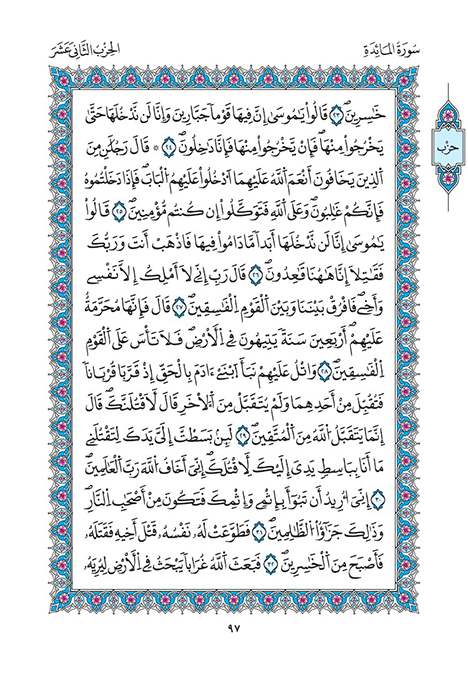 سُورَةُ المَائِدَةِ
الحِزْبُ الثَّانِي عَشَرَ
خَٰسِرِينَ ٢٣ قَالُواْ يَٰمُوسَىٰ إِنَّ فِيهَا قَوْماً جَبَّارِينَ وَإِنَّا لَن نَّدْخُلَهَا حَتَّىٰ
يَخْرُجُواْ مِنْهَا فَإِنْ يَّخْرُجُواْ مِنْهَا فَإِنَّا دَٰخِلُونَ ٢٤ ۞ قَالَ رَجُلَٰنِ مِنَ
حِزْب
اَ۬لذِينَ يَخَافُونَ أَنْعَمَ اَ۬للَّهُ عَلَيْهِمَا اَ۟دْخُلُواْ عَلَيْهِمُ اُ۬لْبَابَ فَإِذَا دَخَلْتُمُوهُ
فَإِنَّكُمْ غَٰلِبُونَ وَعَلَى اَ۬للَّهِ فَتَوَكَّلُواْ إِن كُنتُم مُّؤْمِنِينَ ٢٥ قَالُواْ
يَٰمُوسَىٰ إِنَّا لَن نَّدْخُلَهَا أَبَداً مَّا دَامُواْ فِيهَا فَاذْهَبَ اَنتَ وَرَبُّكَ
فَقَٰتِلَا إِنَّا هَٰهُنَا قَٰعِدُونَ ٢٦ قَالَ رَبِّ إِنِّي لَا أَمْلِكُ إِلَّا نَفْسِي
وَأَخِي فَافْرُقْ بَيْنَنَا وَبَيْنَ اَ۬لْقَوْمِ اِ۬لْفَٰسِقِينَ ٢٧ قَالَ فَإِنَّهَا مُحَرَّمَةٌ
عَلَيْهِمُ أَرْبَعِينَ سَنَةً يَتِيهُونَ فِي اِ۬لَارْضِ فَلَا تَاسَ عَلَى اَ۬لْقَوْمِ
اِ۬لْفَٰسِقِينَ ٢٨ وَاتْلُ عَلَيْهِمْ نَبَأَ اَ۪بْنَيَ ءَادَمَ بِالْحَقِّ إِذْ قَرَّبَا قُرْبَاناً
فَتُقُبِّلَ مِنَ اَحَدِهِمَا وَلَمْ يُتَقَبَّلْ مِنَ اَ۬لَاخَرِ قَالَ لَأَقْتُلَنَّكَ قَالَ
إِنَّمَا يَتَقَبَّلُ اُ۬للَّهُ مِنَ اَ۬لْمُتَّقِينَ ٢٩ لَئِنۢ بَسَطتَ إِلَيَّ يَدَكَ لِتَقْتُلَنِي
مَا أَنَا بِبَاسِطٍ يَدِيَ إِلَيْكَ لِأَقْتُلَكَ إِنِّيَ أَخَافُ اُ۬للَّهَ رَبَّ اَ۬لْعَٰلَمِينَ
٣٠ إِنِّيَ أُرِيدُ أَن تَبُوأَ بِإِثْمِي وَإِثْمِكَ فَتَكُونَ مِنَ اَصْحَٰبِ اِ۬لنَّارِ
وَذَٰلِكَ جَزَٰؤُاْ اُ۬لظَّٰلِمِينَ ٣١ فَطَوَّعَتْ لَهُۥ نَفْسُهُۥ قَتْلَ أَخِيهِ فَقَتَلَهُۥ
فَأَصْبَحَ مِنَ اَ۬لْخَٰسِرِينَ ٣٢ فَبَعَثَ اَ۬للَّهُ غُرَاباً يَبْحَثُ فِي اِ۬لَارْضِ لِيُرِيَهُۥ
٩٧